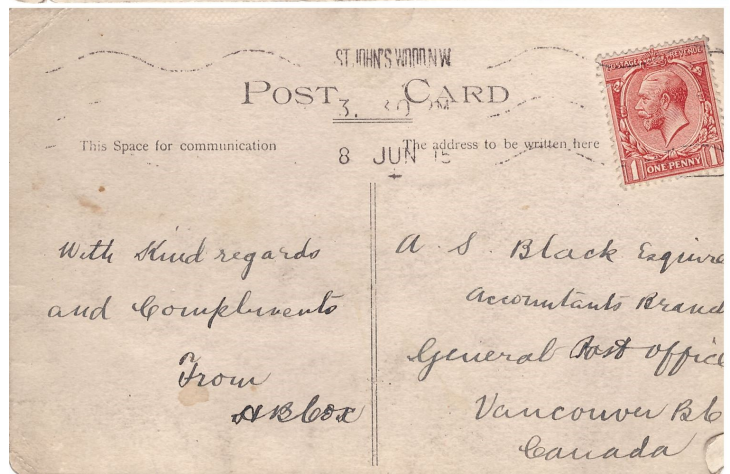 ST JOHN'S WOOD N.W
POST CARD
3. 30 PM
8 JUN 15
This Space for communication
The address to be written here
POSTAGE REVENUE
1 ONE PENNY 1
With Kind regards
and Compliments
From
A B Cox
A S. Black Esquire
Accountants Branc
General Post offic
Vancouver B C
Canada